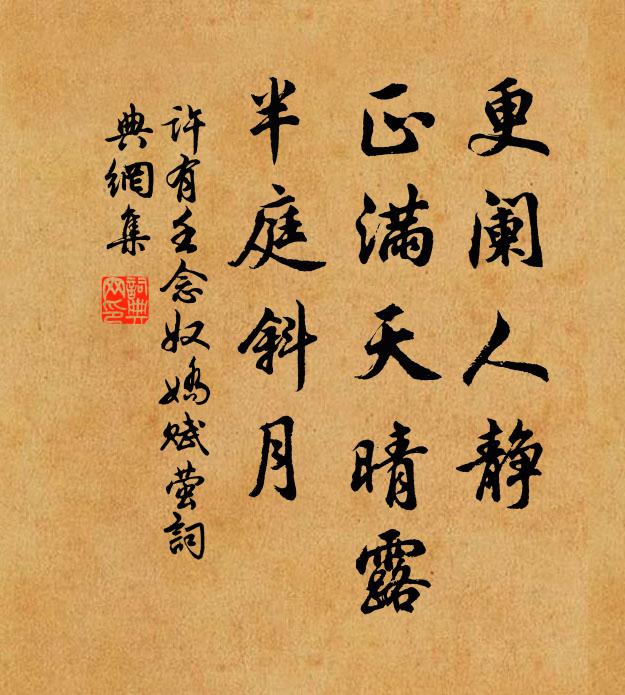 更阑人静
正满天晴露
半庭斜月
许有壬念奴娇赋萤詞
典網集
詞典
网印